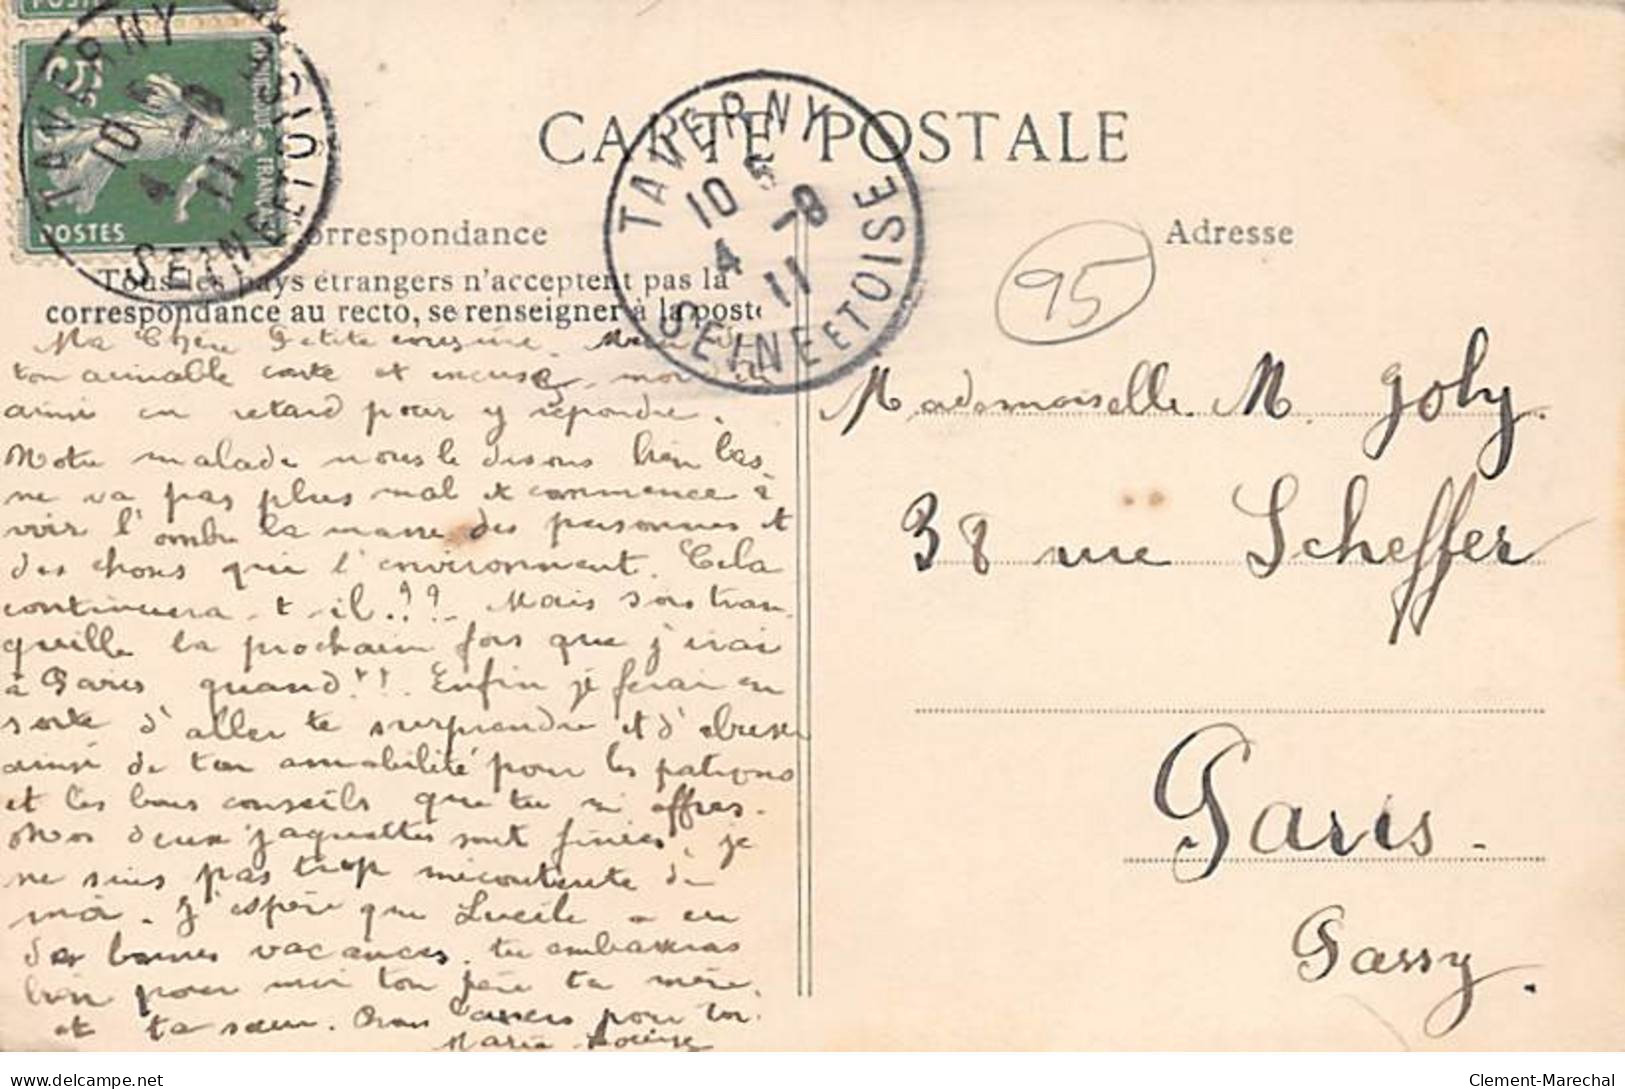 POSTES
POSTES
TAVERNY
10
4 -8
11
SEINE ET OISE
CARTE POSTALE
TAVERNY
10 5
4 -8
11
SEINE ET OISE
Correspondance
Adresse
95
Tous les pays étrangers n'acceptent pas la
correspondance au recto, se renseigner à la poste
Ma Chère Petite cousine. Merci de
ton aimable carte et excuse moi
ainsi en retard pour y répondre.
Notre malade nous le disons bien bas
ne va pas plus mal et commence à
voir l'ombre la masse des personnes et
des choses qui l'environnent. Cela
continuera-t-il ?? Mais sois tran
quille la prochain fois que j'irai
à Paris quand !! Enfin je ferai en
sorte d'aller te surprendre et d'abuser
ainsi de ton amabilité pour les patrons
et les bons conseils que tu m'offres.
Mes deux jaquettes sont finies, je
ne suis pas trop mécontente de
moi. J'espère que Lucile a eu
de bonnes vacances. tu embrasseras
bien pour moi ton père ta mère.
et ta sœur. Bons baisers pour toi.
Marie Louise
Mademoiselle M. Joly.
38 rue Scheffer
Paris.
Passy.
Clement-Marechal